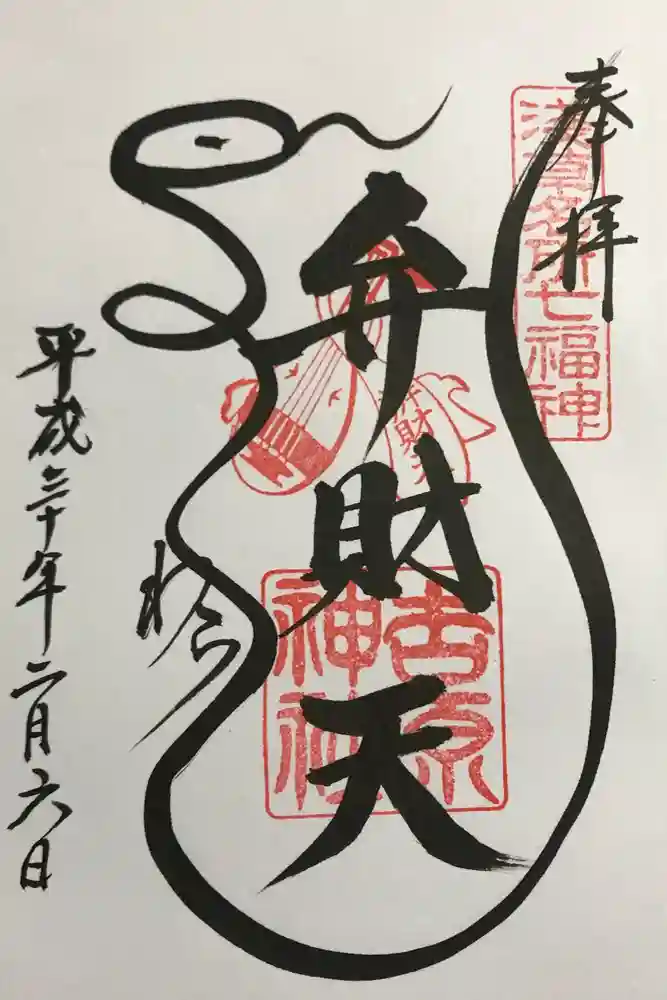 奉拝
浅草名所七福神
弁財天
弁財天
吉原神社
平成三十年二月六日